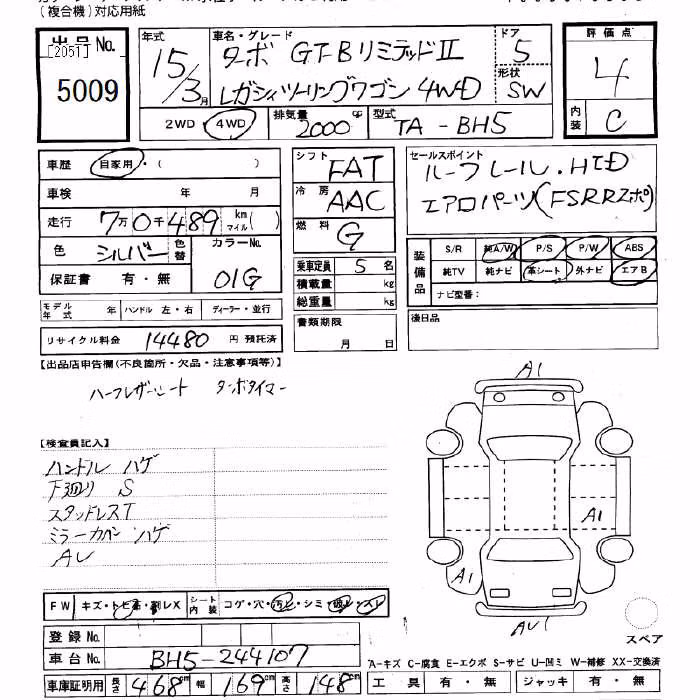 (複合機)対応用紙
出品No.
[2051]
5009
年式
15/3月
車名・グレード
ターボ GT-BリミテッドⅡ
レガシィツーリングワゴン 4WD
ドア
5
形状
SW
2WD・4WD
排気量
2000
cc
型式
TA-BH5
評価点
4
内装
C
車歴 自家用・( )
車検 年 月
走行 7万0千489 km マイル( )
色 シルバー 色替
カラーNo.
01G
保証書 有・無
モデル年式 年 ハンドル 左・右 ディーラー・並行
リサイクル料金 14480 円 預託済
シフト FAT
冷房 AAC
燃料 G
乗車定員 5 名
積載量 kg
総重量 kg
書類期限
月 日
セールスポイント
ルーフレール.HID
エアロパーツ(FSRRZポ)
装備品
S/R 純A/W P/S P/W ABS
純TV 純ナビ 革シート 外ナビ エアB
ナビ型番:
後日品
【出品店申告欄(不良箇所・欠品・注意事項等)】
ハーフレザーシート ターボタイマー
【検査員記入】
ハンドル ハゲ
下廻り S
スタッドレスT
ミラーカバー ハゲ
AU
A1
A1
A1
AU1
スペア
FW キズ・トビ石・割レX
シート内装 コゲ・穴・汚レ・シミ・破レ・スレ
登録No.
車台No. BH5-244107
車庫証明用 長さ 468cm 幅 169cm 高さ 148cm
A-キズ C-腐食 E-エクボ S-サビ U-凹ミ W-補修 XX-交換済
工具 有・無 ジャッキ 有・無